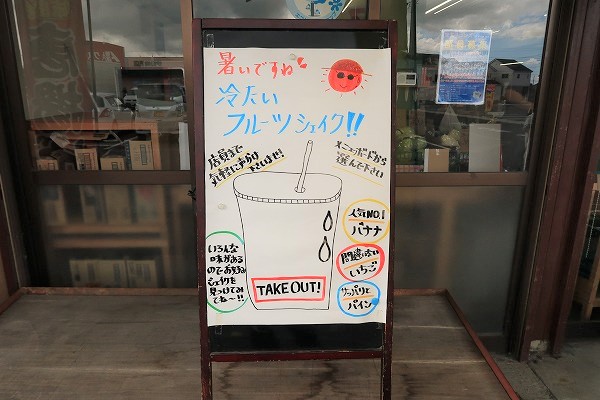 暑いですね
冷たい
フルーツシェイク!!
店員まで
気軽にお声かけ下さいませ!!
メニューボードから
選んで下さい
人気NO.1
バナナ
間違いない
いちご
サッパリと
パイン
いろんな
味がある
のでお好みの
シェイクを
見つけてみ
てね〜!!
TAKE OUT!